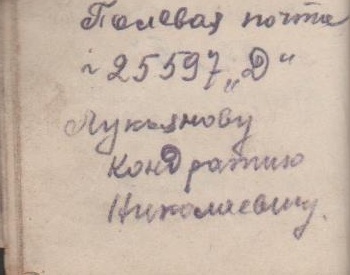 Полевая почта
№ 25597 „Д“
Лукьянову
Кондратию
Николаевичу.